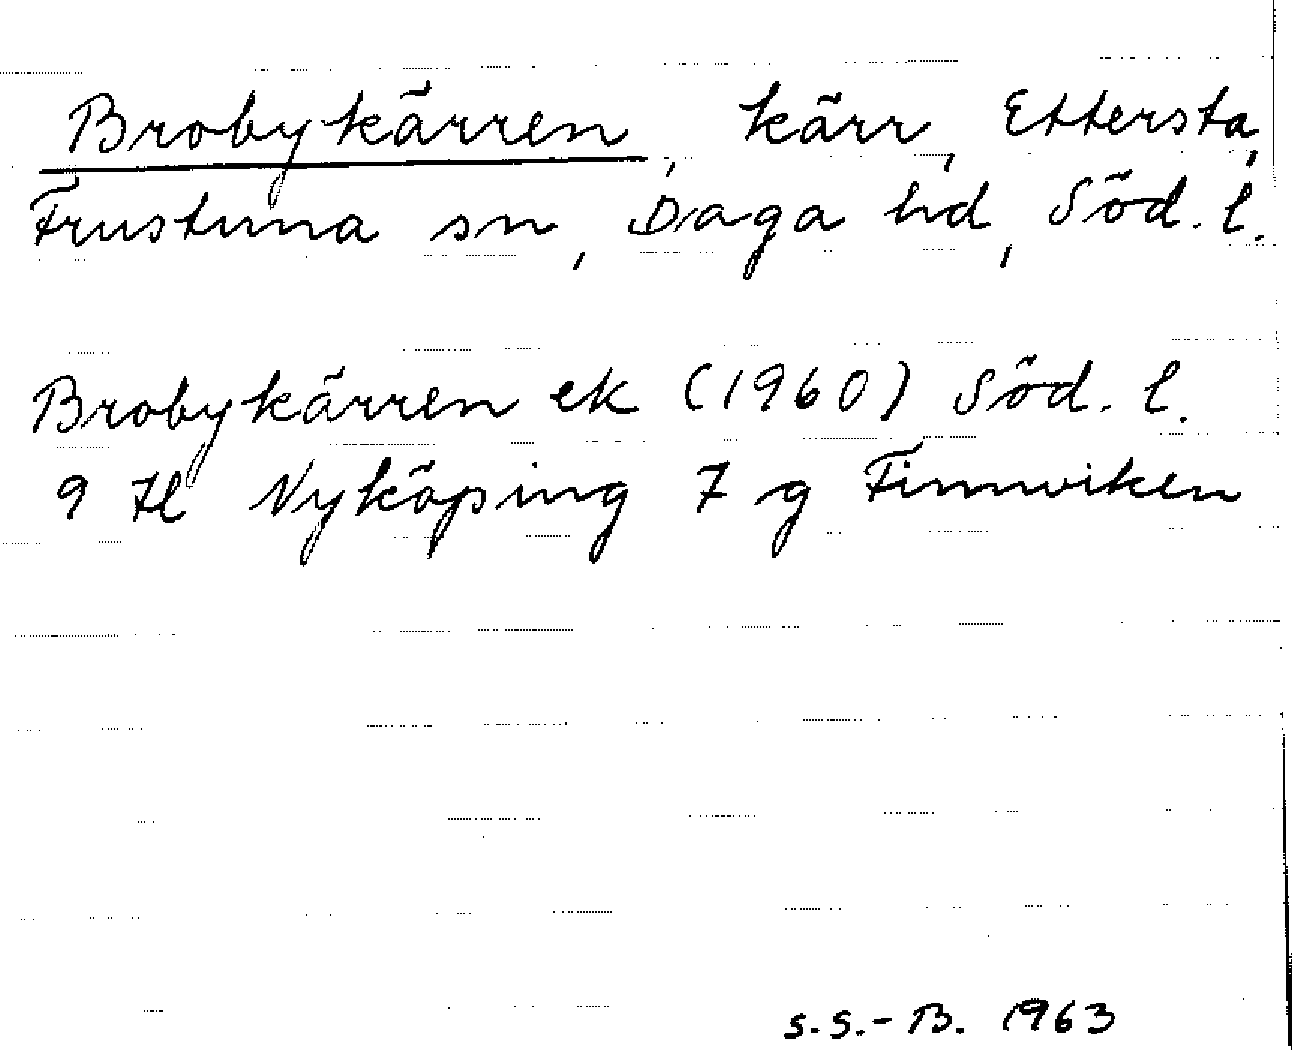 Brobykärren, kärr, Ettersta,
Frustuna sn, Daga hd, Söd. l.
Brobykärren ek (1960) Söd. l.
9 H Nyköping 7 g Finnviken
S.S.-B. 1963